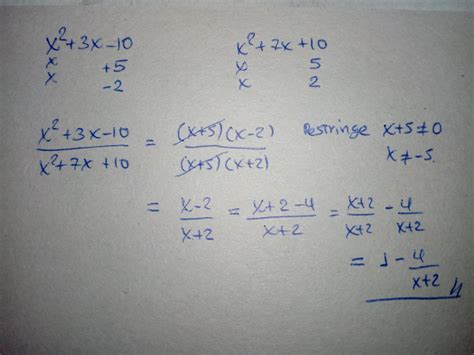 x²+3x-10    x²+7x+10
x    +5    x    5
x    -2    x    2
x²+3x-10 / x²+7x+10 = (x+5)(x-2) / (x+5)(x+2)    Restringe x+5≠0
x≠-5.
= x-2 / x+2 = x+2-4 / x+2 = x+2 / x+2 - 4 / x+2
= 1 - 4 / x+2 //